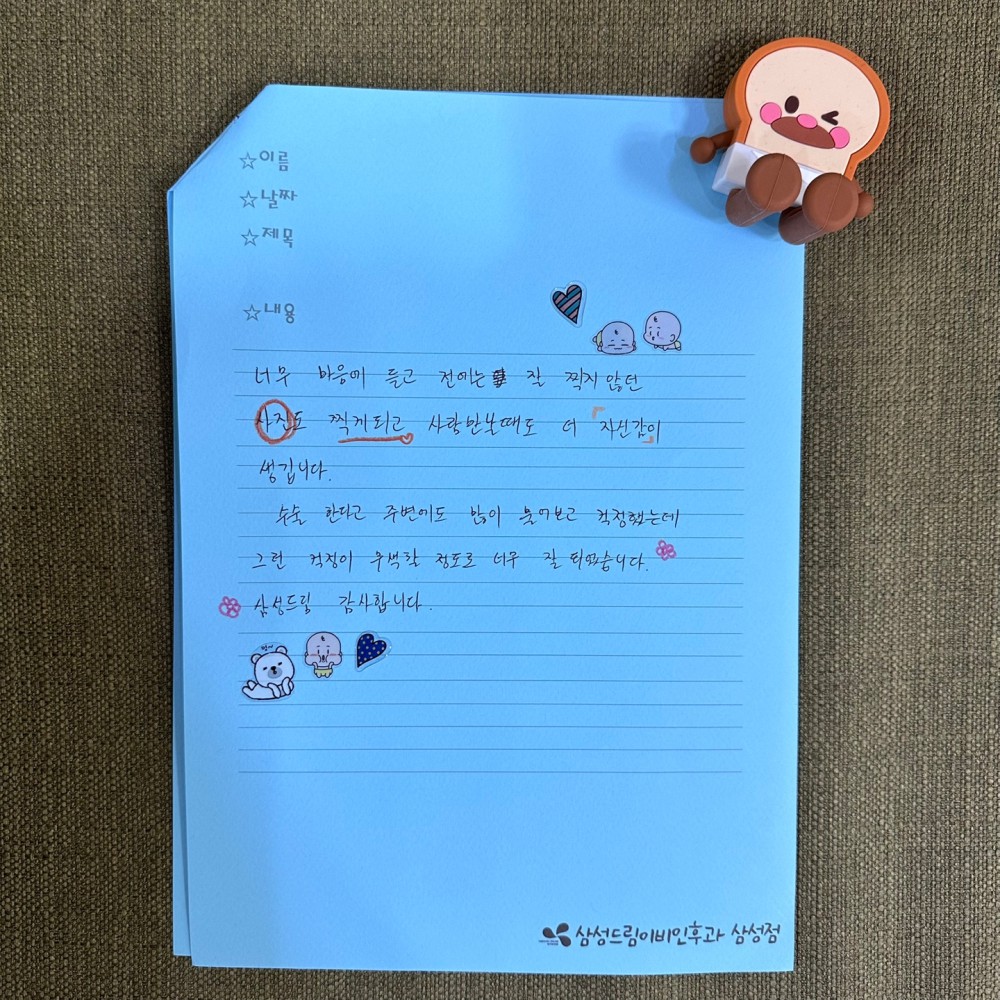 ☆이름
☆날짜
☆제목
☆내용
너무 마음에 들고 전에는 잘 찍지 않던
사진도 찍게되고 사람만날때도 더 「자신감」이
생깁니다.
수술 한다고 주변에도 많이 물어보고 걱정했는데
그런 걱정이 무색할 정도로 너무 잘 되었습니다.
삼성드림 감사합니다.
삼성드림이비인후과 삼성점